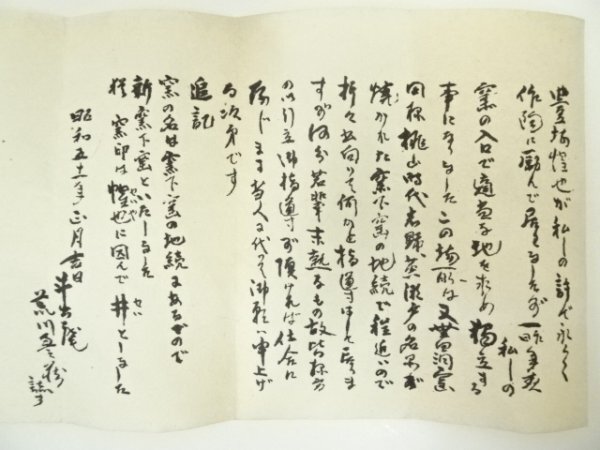 豊場惺也が私しの許で永らく
作陶に励んで居りましたが 一昨年来 私しの
窯の入口で適当な地を求め 獨立する
事になりました この場所は 牟田洞窯
同様桃山時代志野、黄瀬戸の名器が
焼かれた窯下窯の地続で程近いので
折々出向いて何かと指導はして居りま
すが何分若輩未熟なもの故皆様方
の御引立御指導を頂ければ仕合に
存じます 当人に代って御願い申上げ
る次第です
追記
窯の名は窯下窯の地続にあるので
新窯下窯といたしました
猶 窯印は惺也に因んで 井としました
せいや
せい
昭和五十一年正月吉日
斗出庵
荒川豊蔵
誌す